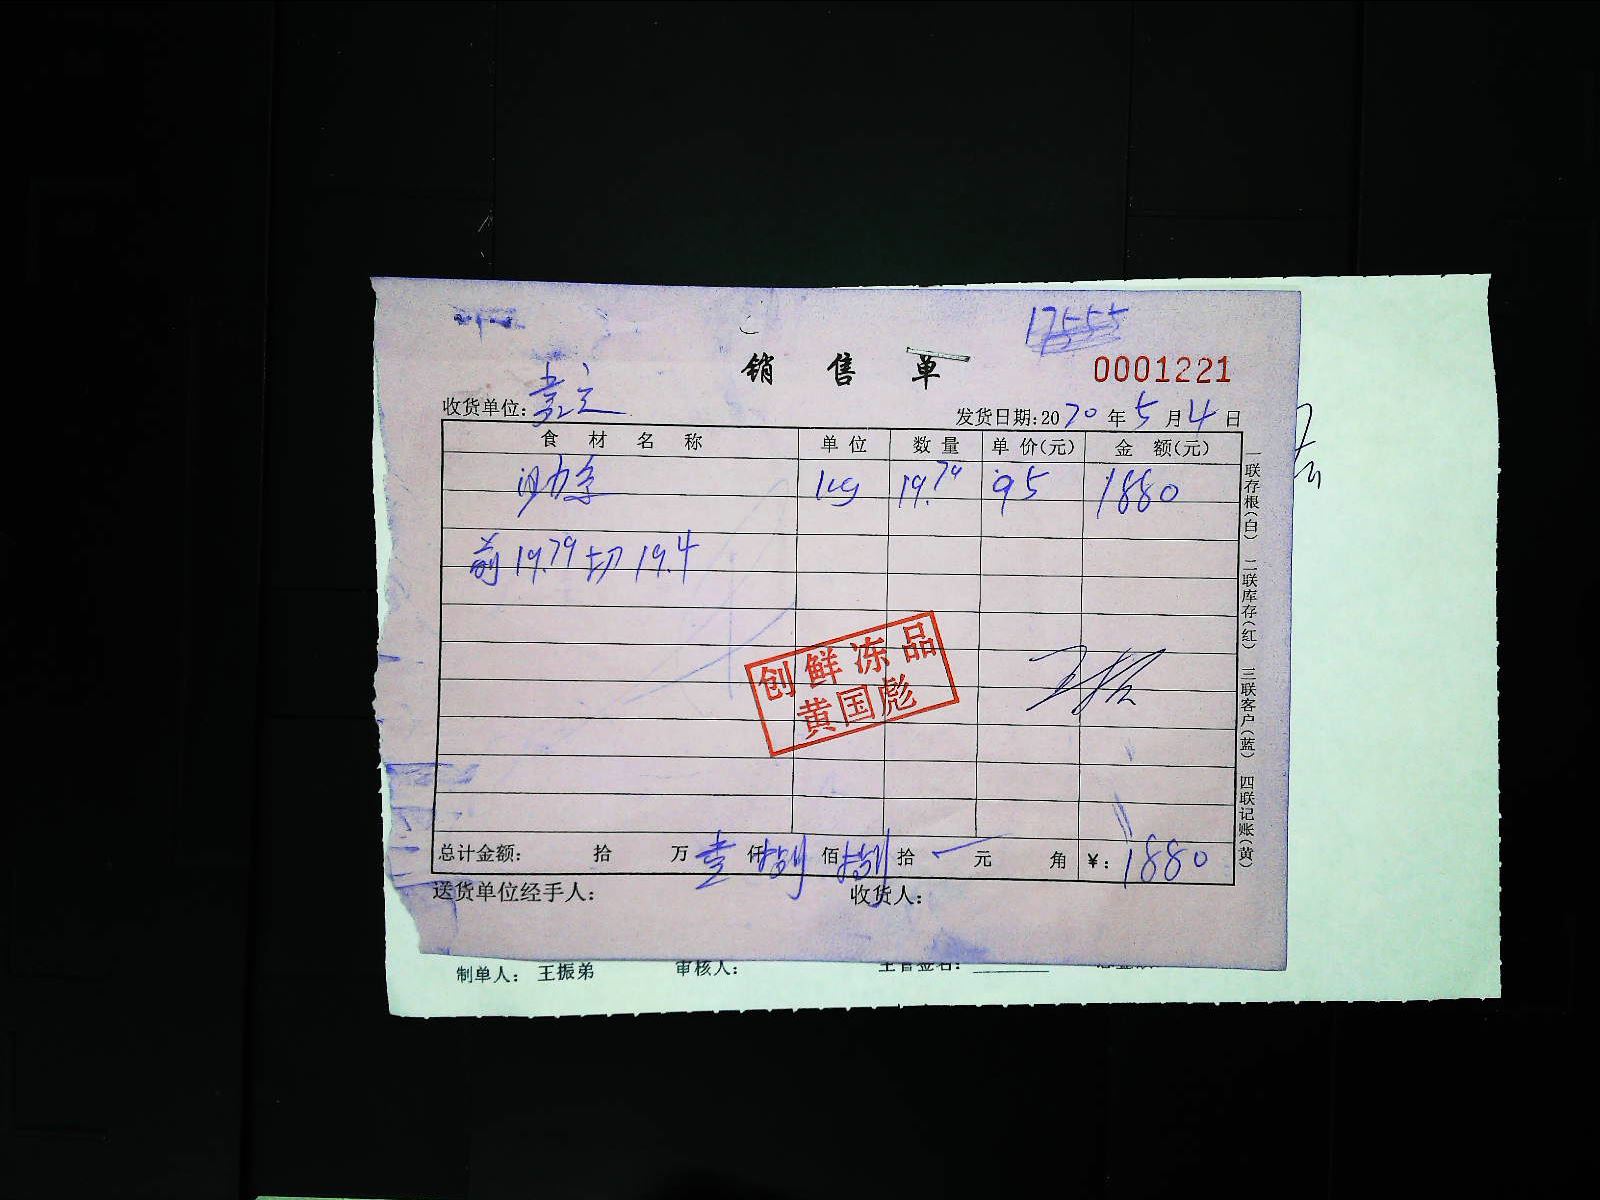 17555
销售单
0001221
收货单位:
发货日期:2020年5月4日
食材名称 单位 数量 单价(元) 金额(元)
kg 19.79 95 1880
前19.79切19.4
创鲜冻品
黄国彪
总计金额: 拾 万 壹 仟 捌 佰 捌 拾 元 角 ¥: 1880
送货单位经手人: 收货人:
一联存根(白) 二联库存(红) 三联客户(蓝) 四联记账(黄)
制单人: 王振弟 审核人: